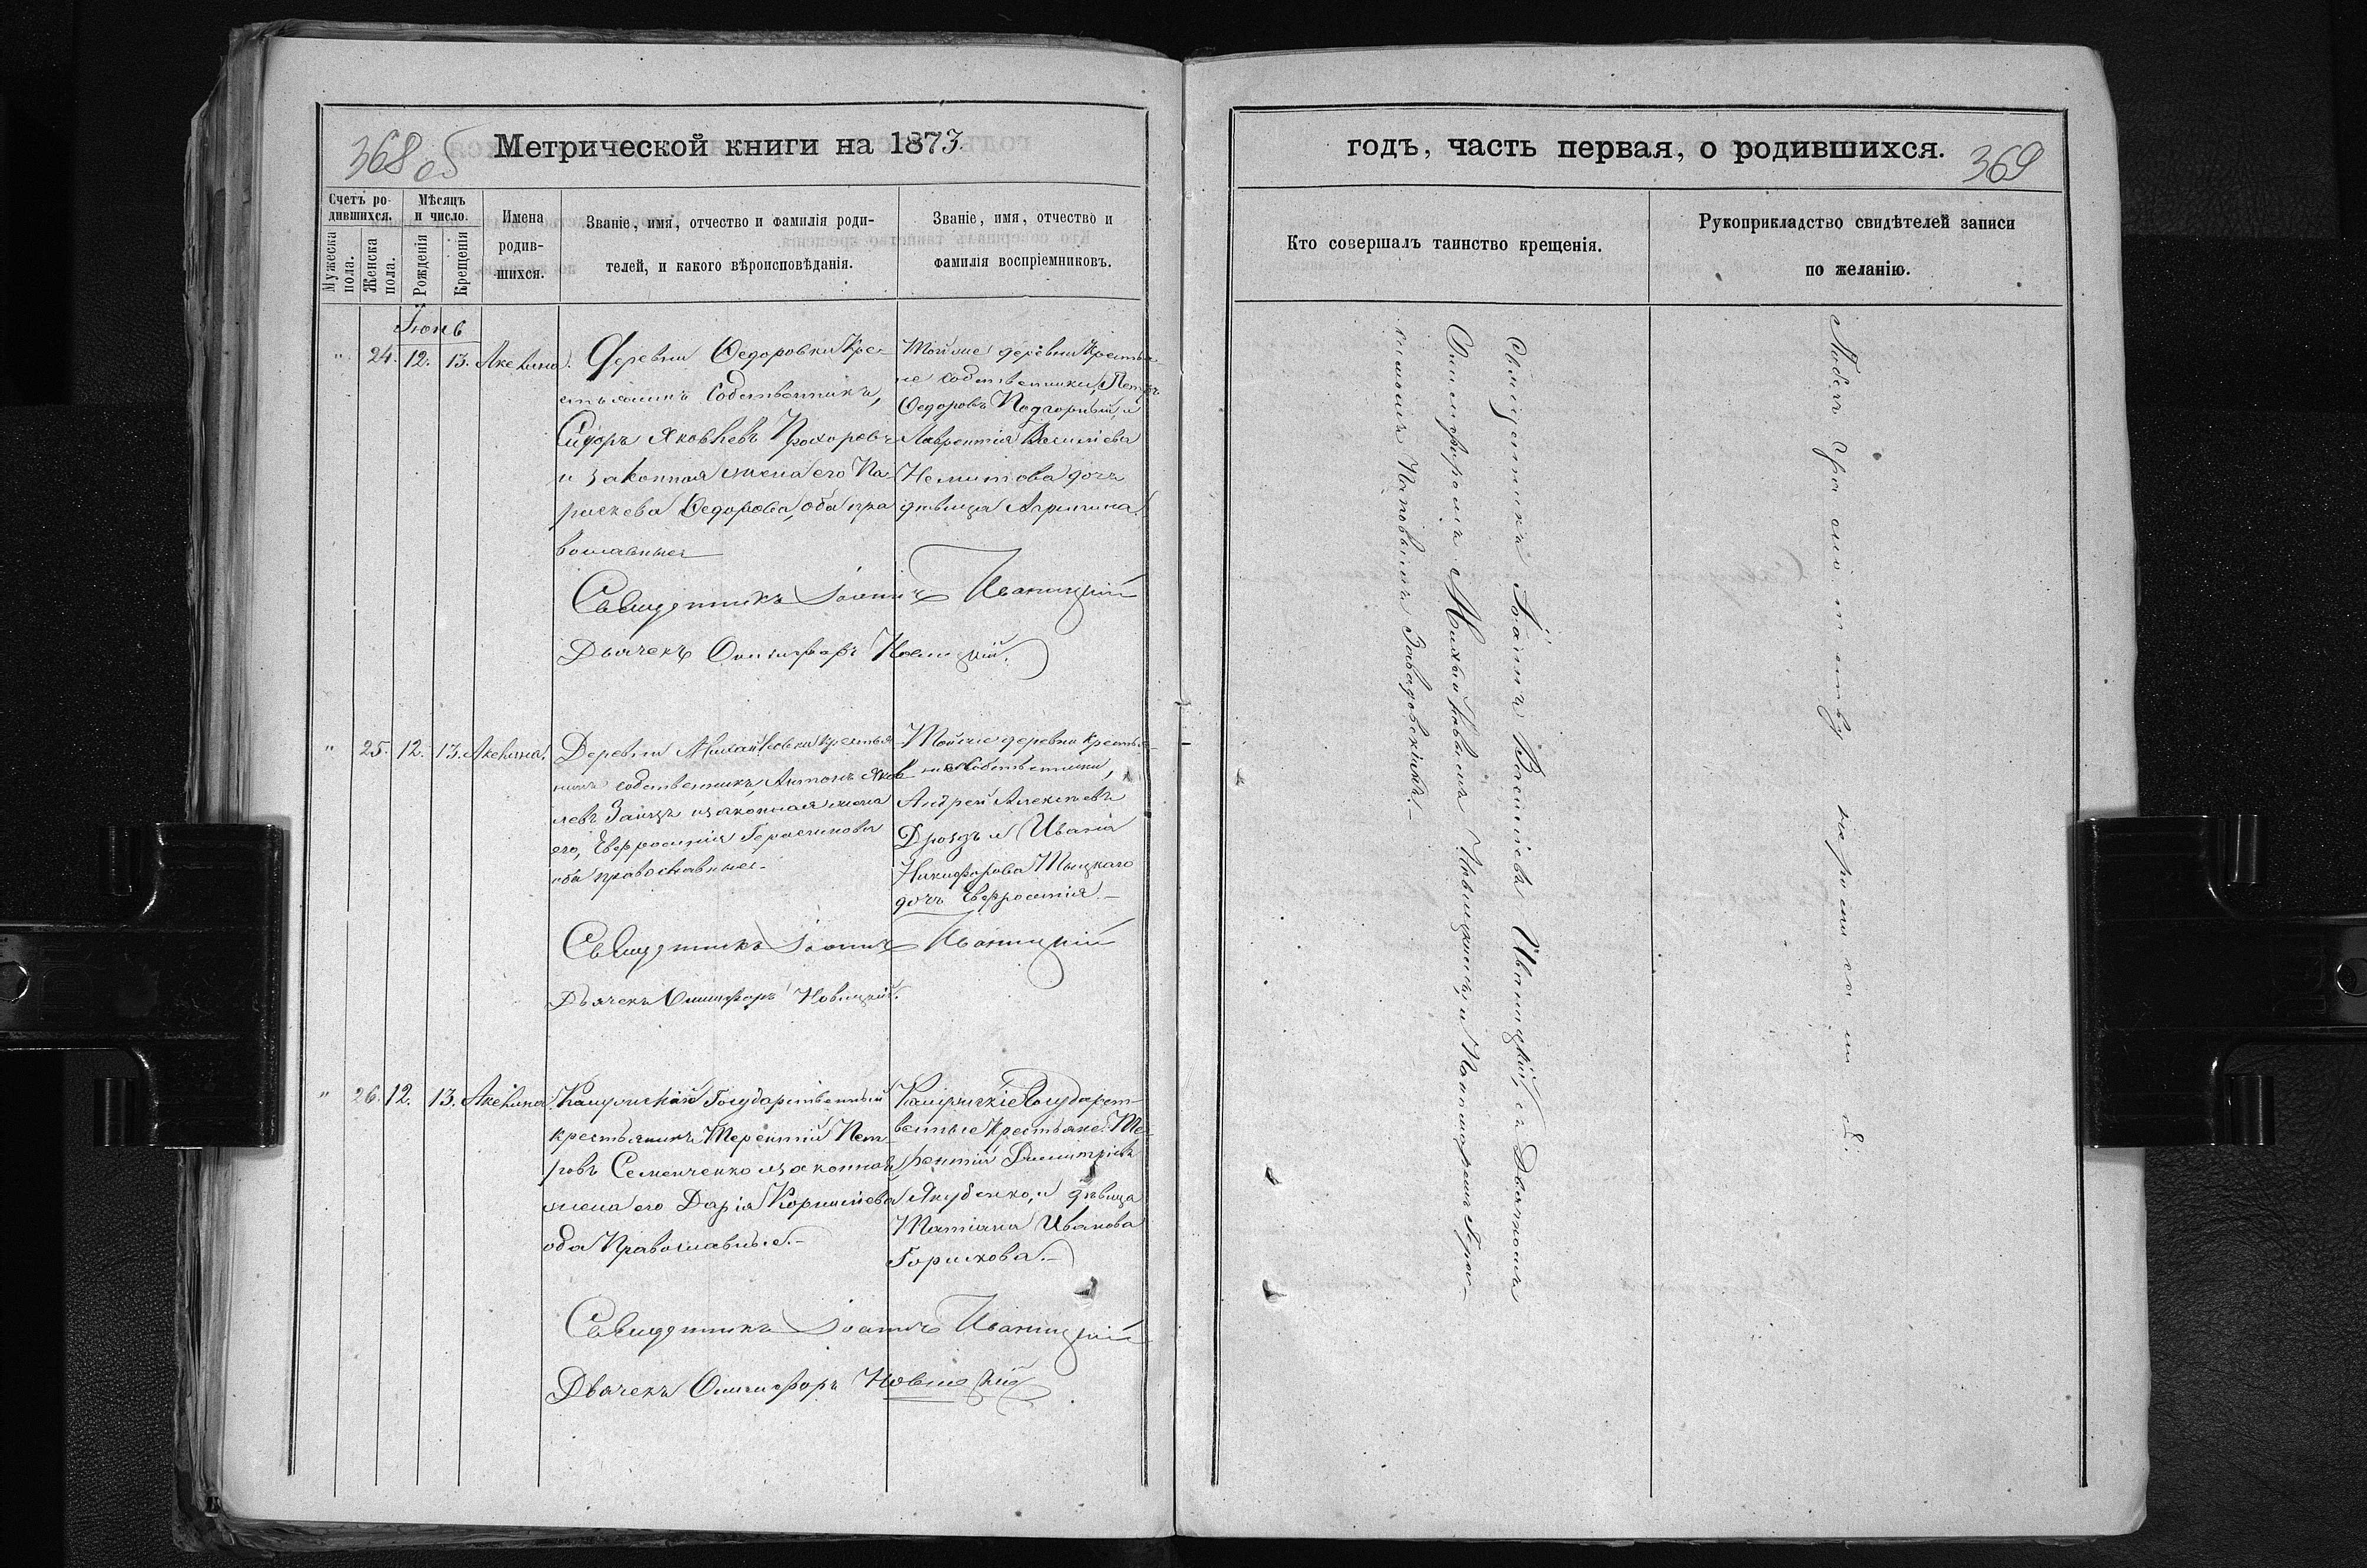 368 об
Метрической книги на 1873.
Счетъ ро-
дившихся.
Мѣсяцъ
и число.
Мужеска
пола.
Женска
пола.
Рожденія
Крещенія
Имена
родив-
шихся.
Званіе, имя, отчество и фамилія роди-
телей, и какого вѣроисповѣданія.
Званіе, имя, отчество и
фамилія воспріемниковъ.
Іюнь
" 24. 12. 13. Акелина.
Деревни Федоровки Кре-
стьянинъ Собственникъ,
Сидоръ Яковлевъ Прохоровъ
и законная жена его Па-
раскева Федорова, оба пра
вославные
Тойже деревни Крестья
не собственники, Петръ
Федоровъ Подгорный, и
Лаврентія Василіева
дочь
дѣвица
Священникъ Іоаннъ Иваницкій
Дьячекъ Онисифоръ Новицкій.
" 25. 12. 13. Акелина.
Деревни Михайловки крестья
нинъ собственникъ, Антонъ Яков
левъ Заицъ и законная жена
его, Евфросинія Герасимова
оба православные.
Тойже деревни крестья-
не собственники,
Андрей Алексѣевъ
Дроздъ и Ивана
Никифорова
дочь Евфросинія.—
Священникъ Іоаннъ Иваницкій
Дьячекъ Онисифоръ Новицкій.
" 26. 12. 13. Акелина.
Государственный
крестьянинъ Терентій Пет-
ровъ Семенченко и законная
жена его Дарія Корниліева
оба Православные.—
Государст-
венные Крестьяне: Те-
рентій Димитріевъ
Якубенко, и дѣвица
Татіана Иванова
Горшкова.—
Священникъ Іоаннъ Иваницкій
Дьячекъ Онисифоръ Новицкій
годъ, часть первая, о родившихся.
369
Кто совершалъ таинство крещенія.
Рукоприкладство свидѣтелей записи
по желанію.
Священникъ Іоаннъ Василіевъ Иваницкій, съ Дьячкомъ
Онисифоромъ Михайловымъ Новицкимъ, и Пономаремъ Гера-
симомъ Завадовскимъ.—